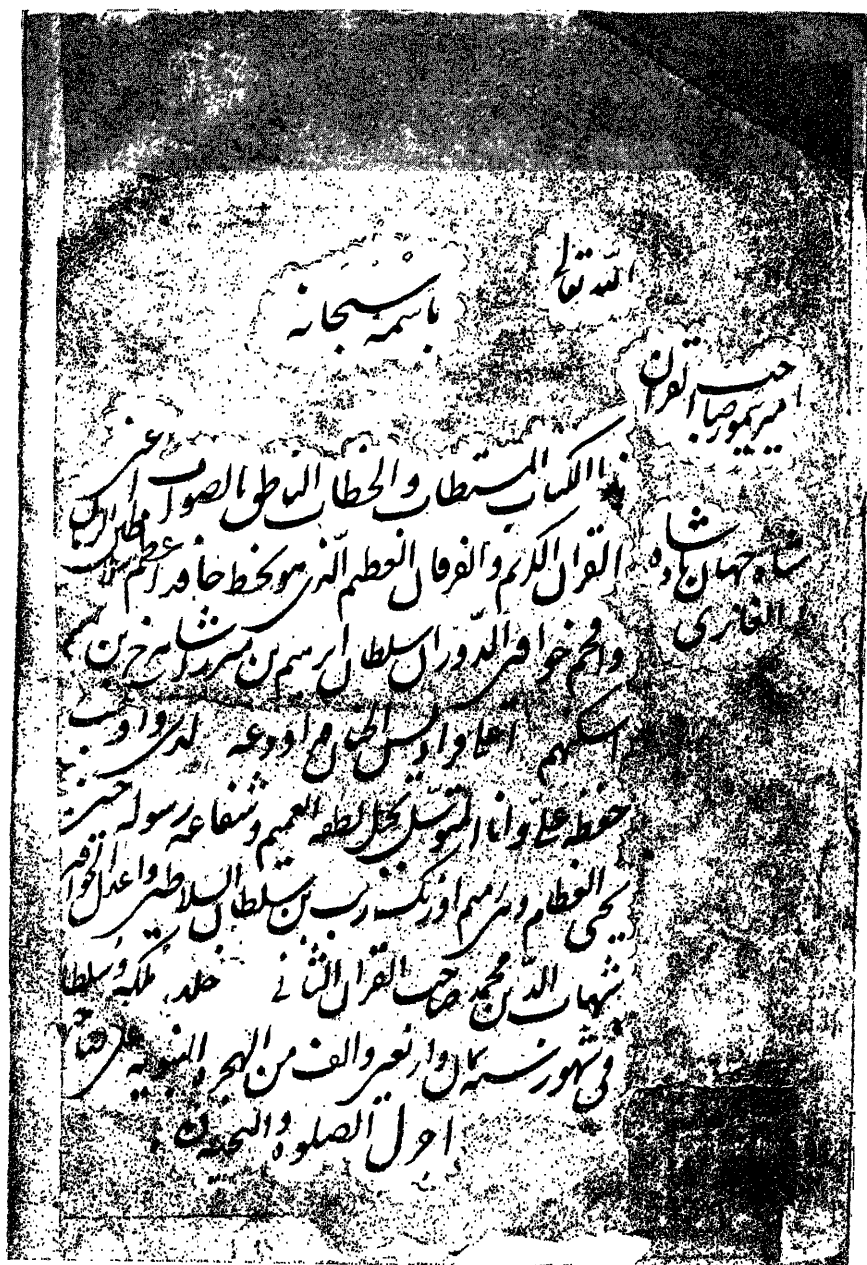 الله تعالى
باسمه سبحانه
امیر تیمور صاحب القران
شاه جهان بادشاه
الغازی
هذا الکتاب المستطاب والخطاب الناطق بالصواب اعنی
القران الکریم والفرقان العظیم الذی هو بخط حافد اعظم سلاطین الزمان
وافخم خواقین الدوران سلطان ابرهیم بن میرزا شاهرخ بن
اسکنهم اعلی فرادیس الجنان اودعه لدی واوجب
حفظه علی وانا المتوسل بحبل لطفه العمیم وشفاعة رسوله
یحیی العظام وهی رمیم اورنک زیب بن سلطان السلاطین واعدل الخواقین
شهاب الدین محمد صاحب القران الثانی خلد ملکه وسلطانه
فی شهور سنه ثمان واربعین والف من الهجرة النبویة علی صاحبها
اجزل الصلوة والتحیة